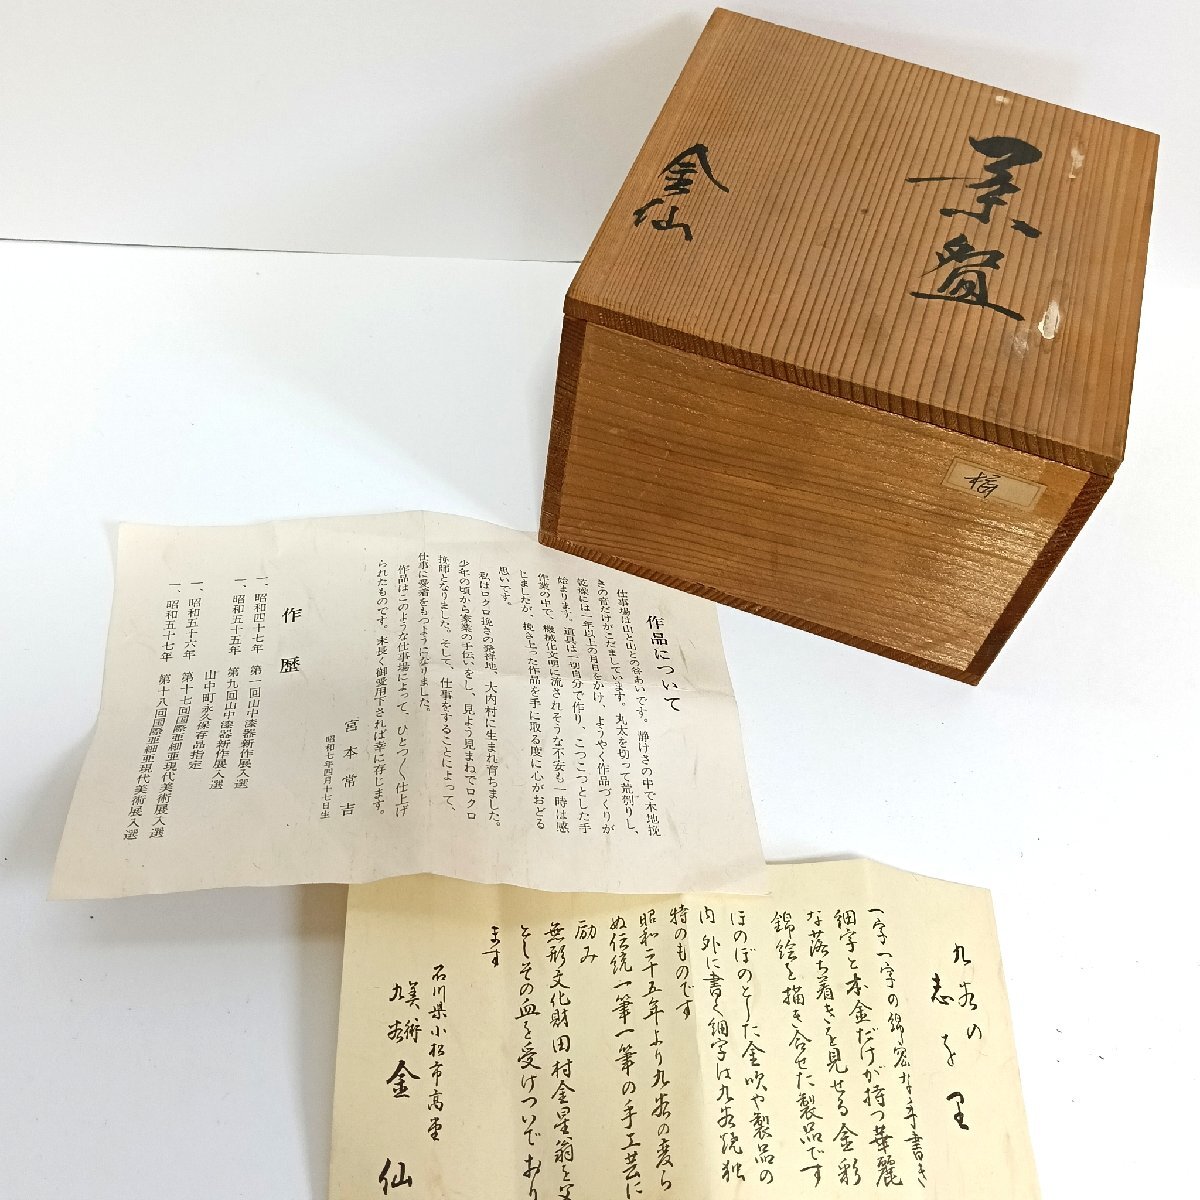 菓盤
金仙
作品について
仕事場は山と山との谷あいです。静けさの中で木地挽
きの音だけがこだましています。丸太を切って荒割りし、
乾燥には一年以上の月日をかけ、ようやく作品づくりが
始まります。道具は一切自分で作り、こつこつとした手
作業の中で、機械化文明に流されそうな不安も一時は感
じましたが、挽き上った作品を手に取る度に心がおどる
思いです。
私はロクロ挽きの発祥地、大内村に生まれ育ちました。
少年の頃から家業の手伝いをし、見よう見まねでロクロ
挽師となりました。そして、仕事をすることによって、
仕事に愛着をもつようになりました。
作品はこのような仕事場によって、ひとつ〱仕上げ
られたものです。末長く御愛用下されば幸に存じます。
宮本常吉
昭和七年四月十七日生
作歴
一、昭和四十七年 第一回山中漆器新作展入選
一、昭和五十五年 第九回山中漆器新作展入選
山中町永久保存品指定
一、昭和五十六年 第十七回国際亜細亜現代美術展入選
一、昭和五十七年 第十八回国際亜細亜現代美術展入選
九谷の
志をり
一字一字の綿密な手書き
細字と本金だけが持つ華麗
な落ち着きを見せる金彩
錦絵を描き合せた製品です
ほのぼのとした金吹や製品の
内外に書く細字は九谷焼独
特のものです
昭和二十五年より九谷の変ら
ぬ伝統一筆一筆の手工芸に
励み
無形文化財田村金星翁を
としその血を受けついでおり
ます
石川県小松市高堂
九谷美術 金仙